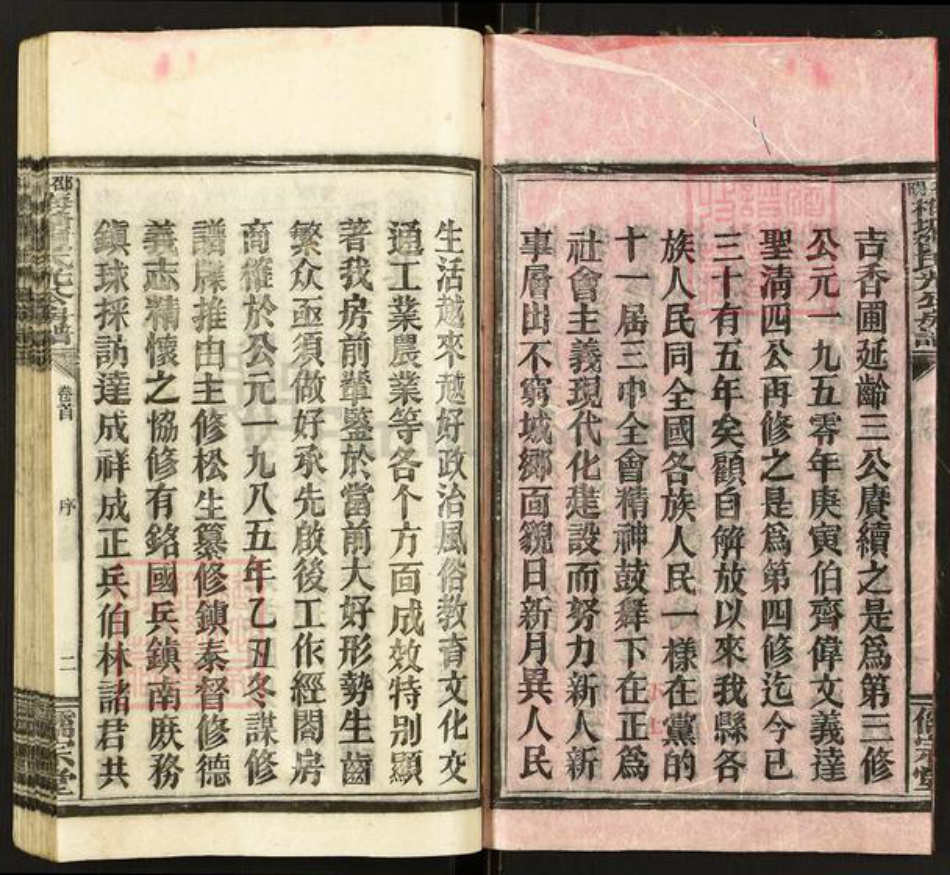 吉香圃延齡三公賡續之是爲第三修
公元一九五零年庚寅伯齊偉文義達
聖清四公再修之是爲第四修迄今已
三十有五年矣顧自解放以來我縣各
族人民同全國各族人民一樣在黨的
十一届三中全會精神鼓舞下在正爲
社會主義現代化建設而努力新人新
事層出不窮城鄉面貌日新月異人民
生活越來越好政治風俗教育文化交
通工業農業等各个方面成效特别顯
著我房前輩鑒於當前大好形勢生齒
繁众亟須做好承先啟後工作經閤房
商榷於公元一九八五年乙丑冬謀修
譜牒推由主修松生纂修鎮泰督修德
義志精懷之協修有銘國兵鎮南庶務
鎮球採訪達成祥成正兵伯林諸君共
卷首
序
二